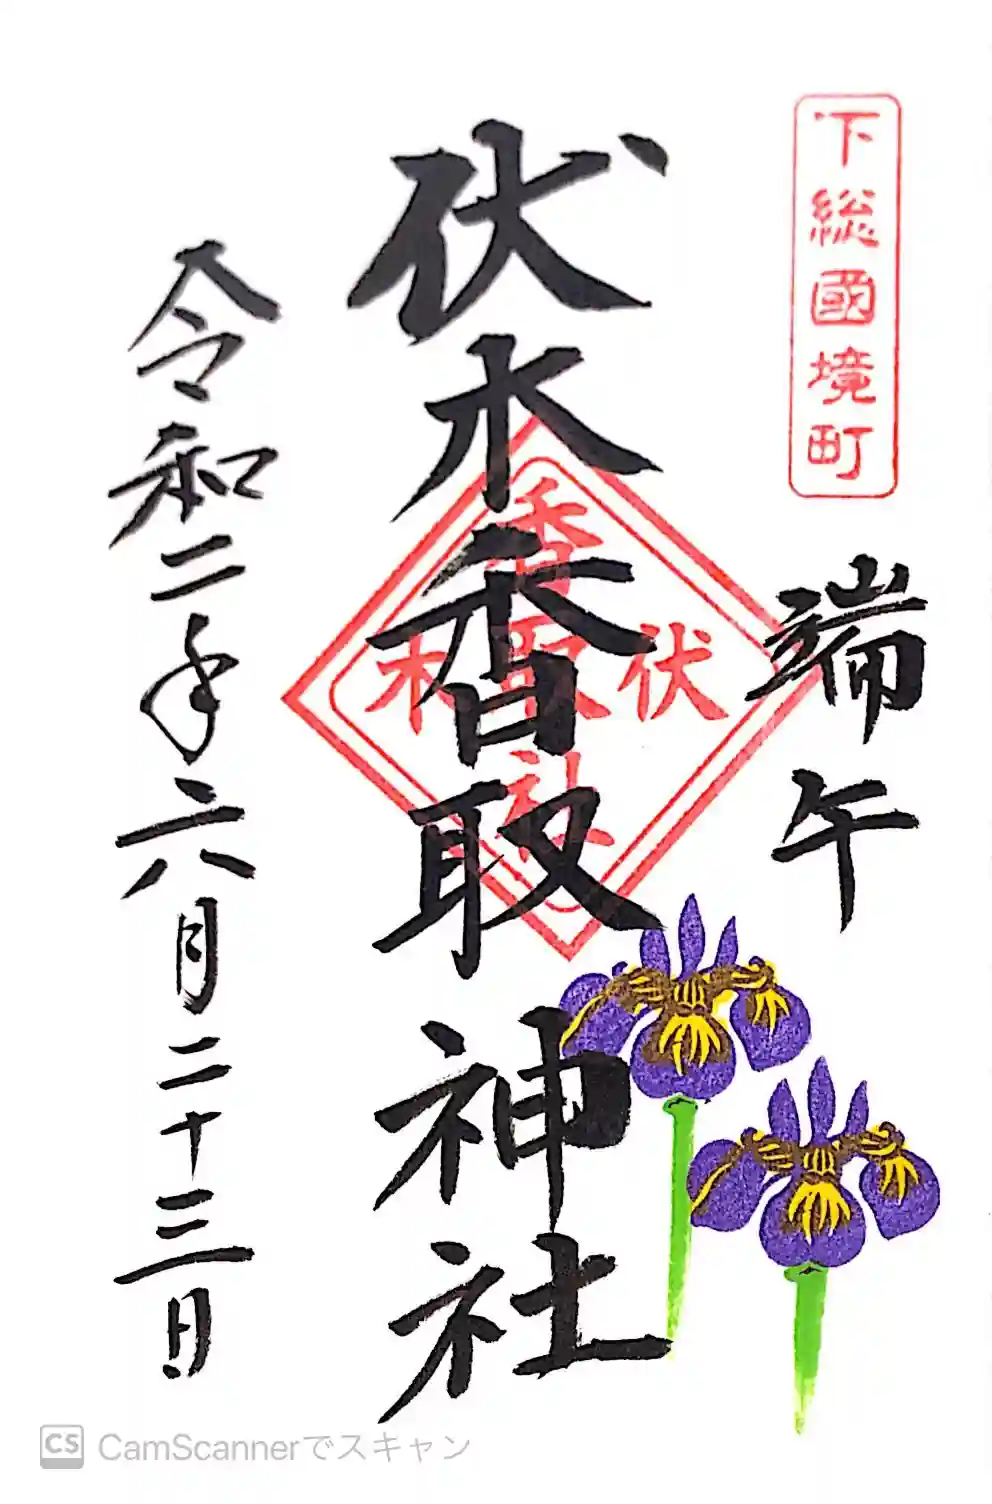 下総國境町
端午
伏木香取神社
伏木
香取社
令和二年六月二十三日
CS CamScannerでスキャン